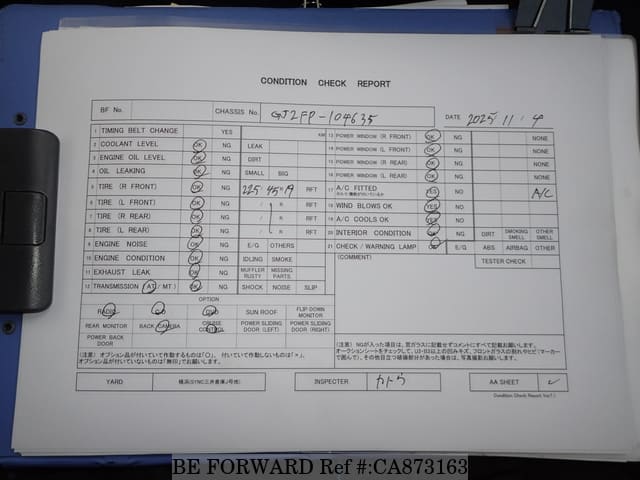 CONDITION CHECK REPORT
BF No. CHASSIS No. GJ2FP-104635 DATE 2025.11.9
1 TIMING BELT CHANGE YES KM
2 COOLANT LEVEL OK NG LEAK
3 ENGINE OIL LEVEL OK NG DIRT
4 OIL LEAKING OK NG SMALL BIG
5 TIRE (R FRONT) OK NG 225/45R19 RFT
6 TIRE (L FRONT) OK NG / R RFT
7 TIRE (R REAR) OK NG / R RFT
8 TIRE (L REAR) OK NG / R RFT
9 ENGINE NOISE OK NG E/G OTHERS
10 ENGINE CONDITION OK NG IDLING SMOKE
11 EXHAUST LEAK OK NG MUFFLER RUSTY MISSING PARTS
12 TRANSMISSION (AT / MT) OK NG SHOCK NOISE SLIP
13 POWER WINDOW (R FRONT) OK NG NONE
14 POWER WINDOW (L FRONT) OK NG NONE
15 POWER WINDOW (R REAR) OK NG NONE
16 POWER WINDOW (L REAR) OK NG NONE
17 A/C FITTED YES NO A/C
18 WIND BLOWS OK YES NO
19 A/C COOLS OK YES NO
20 INTERIOR CONDITION OK NG DIRT SMOKING SMELL OTHER SMELL
21 CHECK / WARNING LAMP OK E/G ABS AIRBAG OTHER
(COMMENT) TESTER CHECK
OPTION
RADIO CD DVD SUN ROOF FLIP DOWN MONITOR
REAR MONITOR BACK CAMERA CRUISE CONTROL POWER SLIDING DOOR (LEFT) POWER SLIDING DOOR (RIGHT)
POWER BACK DOOR
(注意) オプション品が付いていて作動するものは「○」、付いていて作動しないものは「×」、
オプション品が付いていないものは「無印」でお願いします。
(注意) NGが入った項目は、窓ガラスに記載せずコメントにすべて記載お願いします。
オークションシートをチェックして、U3・B3以上の凹みキズ、フロントガラスの割れやヒビ(マーカー
で囲んで)、その他目立つ破損部分があった場合は、写真撮影お願いします。
YARD 横浜(SYNC三井倉庫J号地) INSPECTER かとう AA SHEET ✓
Condition Check Report Ver7.1
BE FORWARD Ref #:CA873163